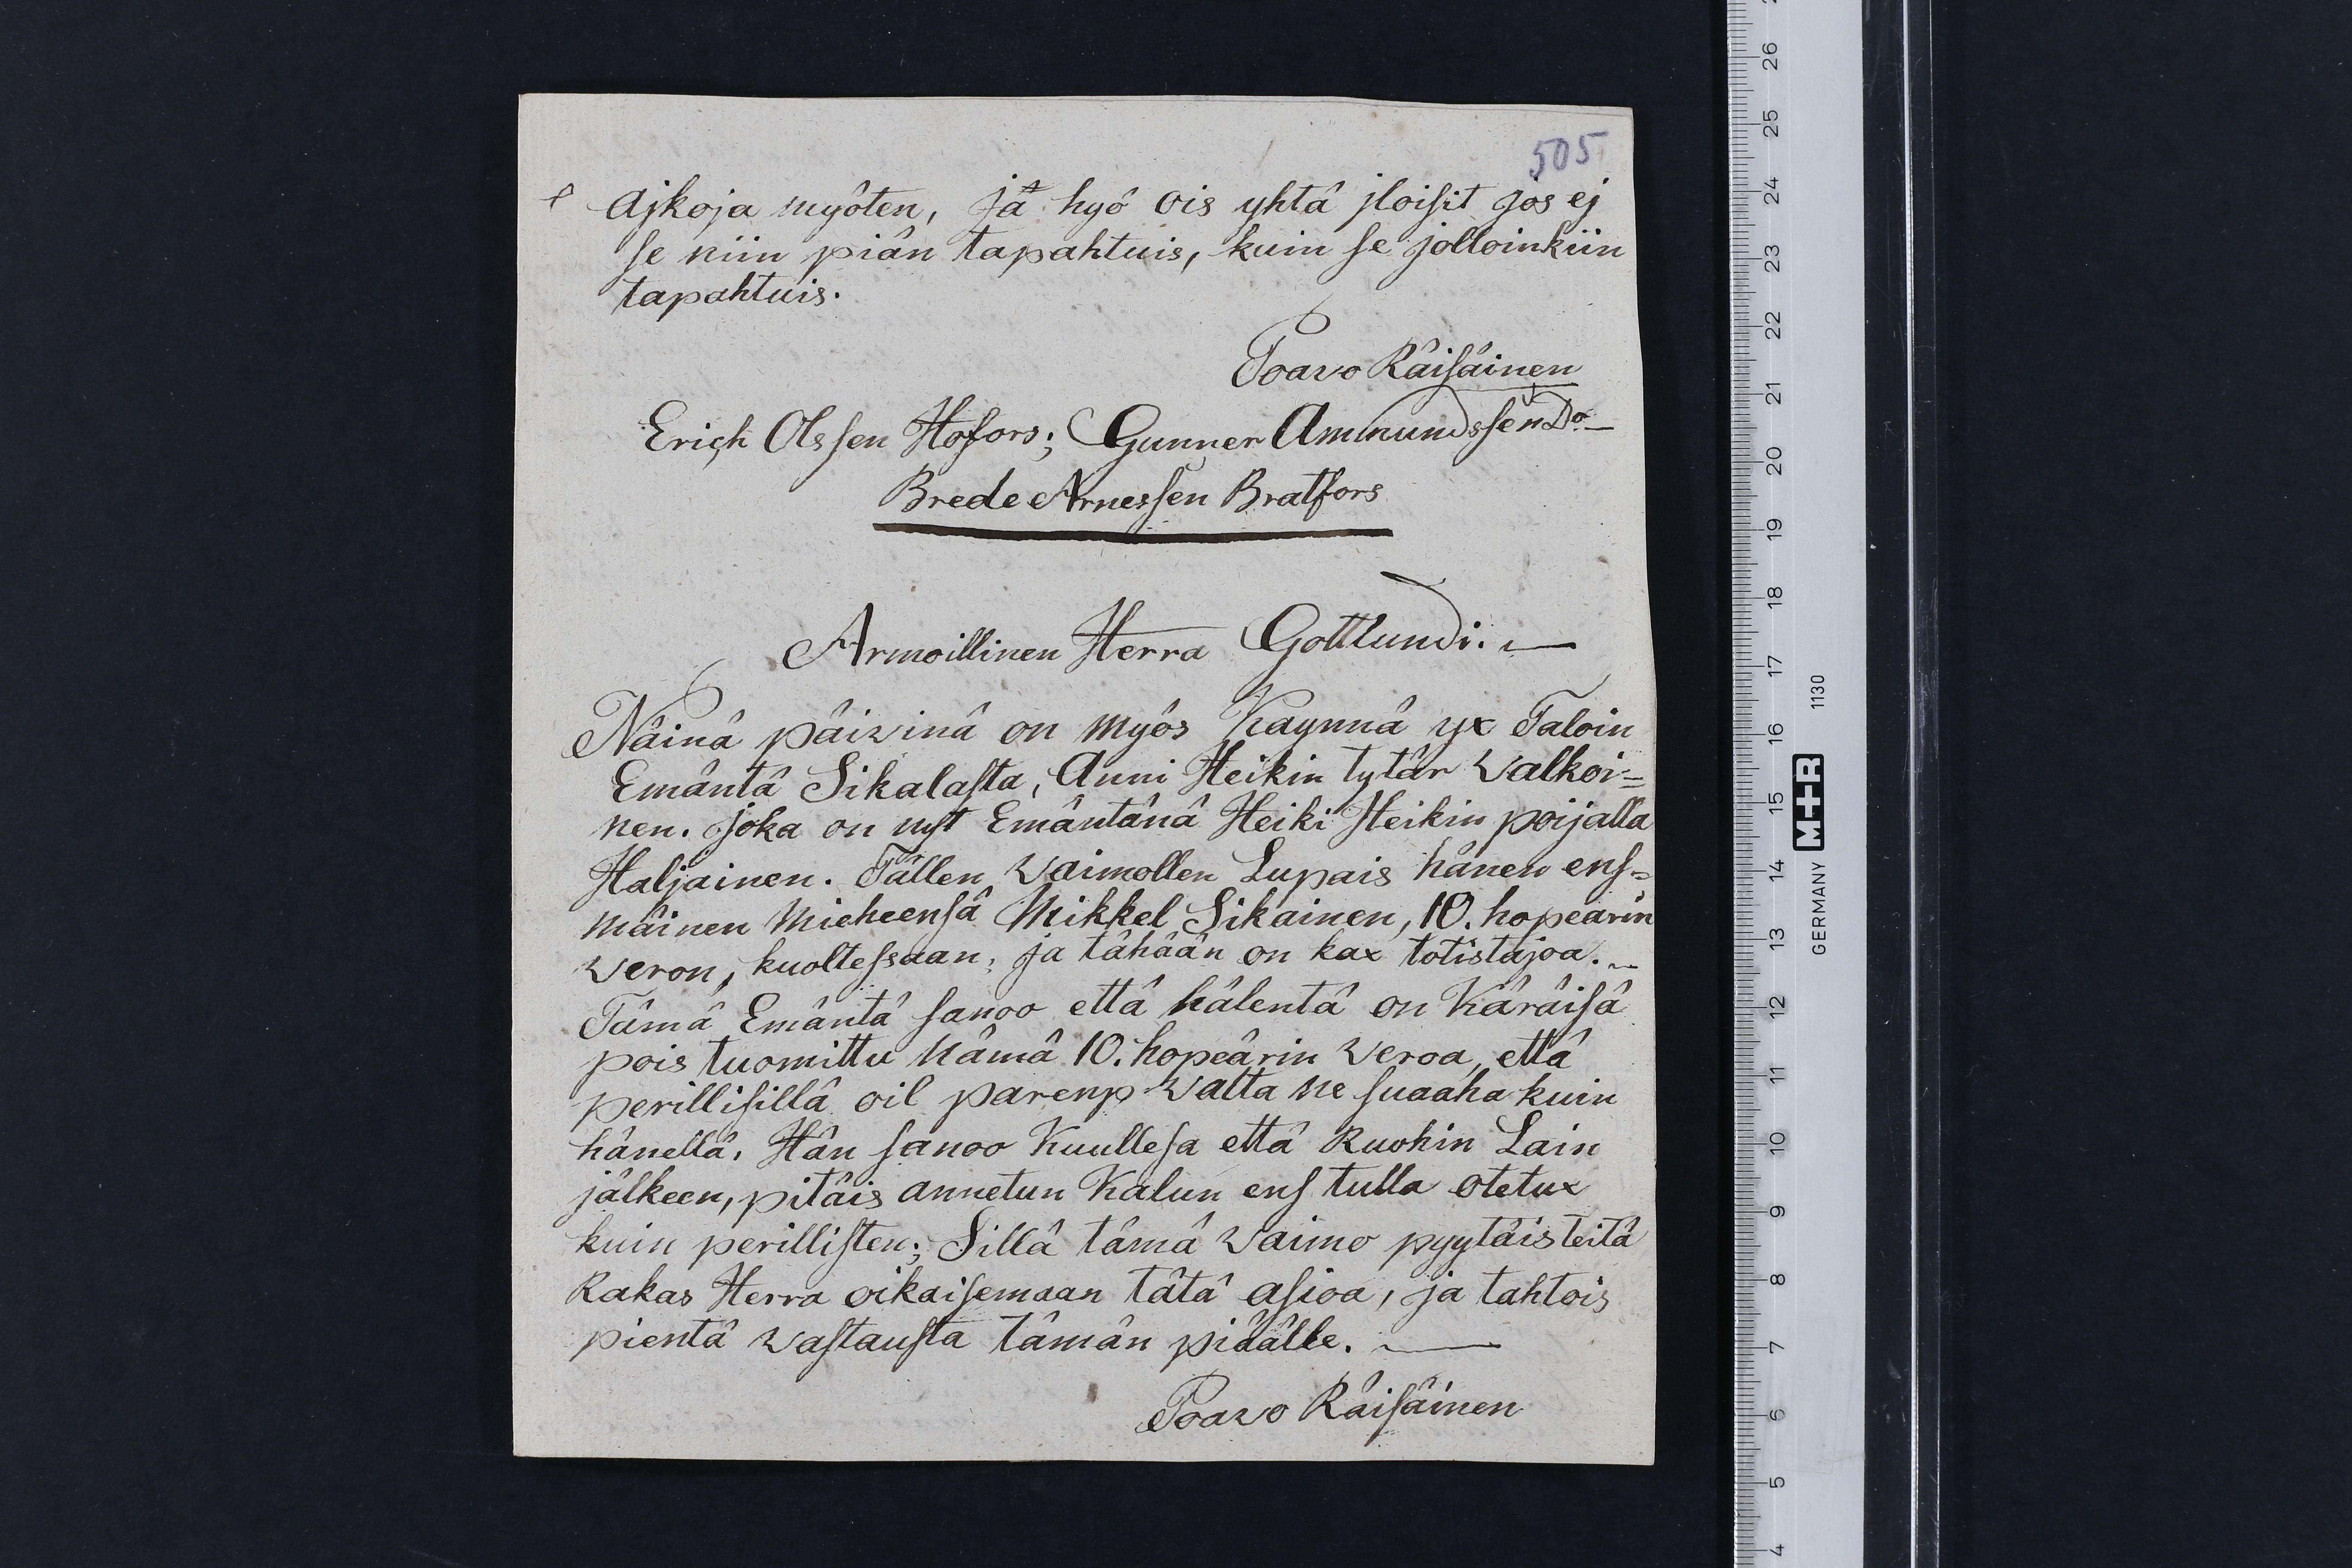 505
Ajkoja myöten, Ja hyö ois yhtä jloisit Jos ej
se niin piän tapahtuis, kuin se jolloinkiin
tapahtuis.
Poavo Räisäinen
Erich Olssen Hofors; Gunner Ammundssen Do
Brede Arnessen Bratfors
Armoillinen Herra Gottlundi.
Näinä päivinä on myös Kaynnä yx Taloin
Emäntä Sikalasta, Anni Heikin tytär Valkoi=
nen. Joka on nyt Emäntänä Heiki Heikin poijalla
Haljainen. Tällen Vaimollen Lupais hänen ens=
mäinen Mieheensä Mikkel Sikainen, 10. hopearin
Veron, kuoltessaan, ja tähään on kax totistajoa.
Tämä Emäntä sanoo että hälentä on Käräisä
pois tuomittu Nämä 10. hopeärin Veroa, että
perillisillä oil paremp valta ne suaaha kuin
hänellä, Hän sanoo Kuullesa että Ruohin Lain
jälkeen, pitäis annetun Kalun ens tulla otetux
kuin perillisten; Sillä tämä Vaimo pyytäis teitä
Rakas Herra oikaisemaan tätä asioa, ja tahtois
pientä vastausta tämän piäälle.
Poavo Räisäinen
26
25
24
23
22
21
20
19
18
17
16
15
14
13
12
11
10
9
8
7
6
5
4
GERMANY M+R 1130